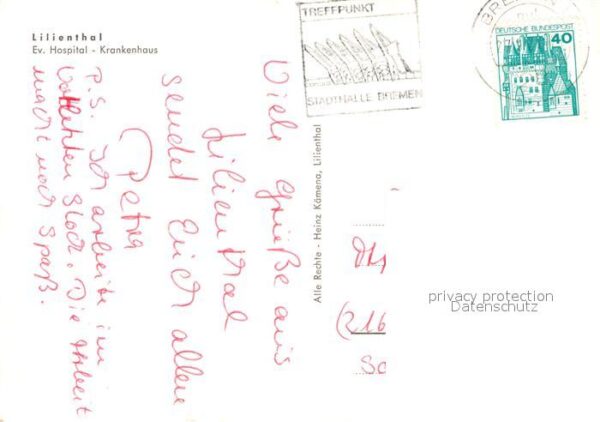 Lilienthal
Ev. Hospital - Krankenhaus
TREFFPUNKT
STADTHALLE BREMEN
DEUTSCHE BUNDESPOST
40
Viele Grüße aus
Lilienthal
sendet Euch allen
Petra
P.S. Ich arbeite im
vorletzten Stock. Die Arbeit
macht noch Spaß.
Alle Rechte - Heinz Kämena, Lilienthal
(216
Sc
privacy protection
Datenschutz